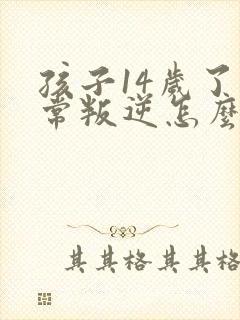 孩子14歲了
常叛逆怎麼
其其格其其格